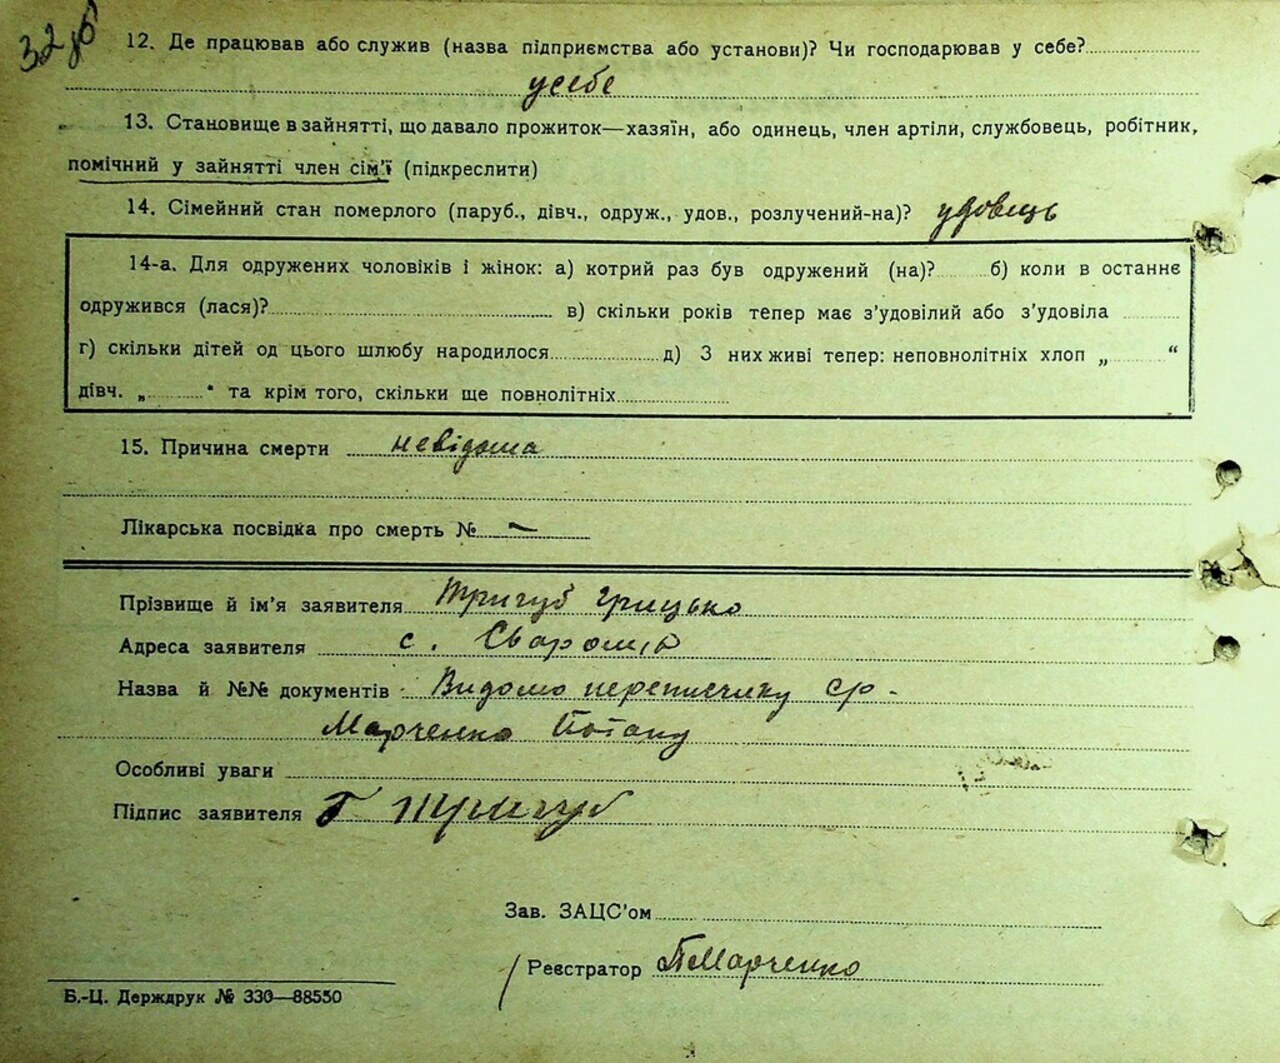 32зб
12. Де працював або служив (назва підприємства або установи)? Чи господарював у себе?
усебе
13. Становище в зайнятті, що давало прожиток—хазяїн, або одинець, член артіли, службовець, робітник,
помічний у зайнятті член сім'ї (підкреслити)
14. Сімейний стан померлого (паруб., дівч., одруж., удов., розлучений-на)? удовець
14-а. Для одружених чоловіків і жінок: а) котрий раз був одружений (на)? б) коли в останнє
одружився (лася)? в) скільки років тепер має з'удовілий або з'удовіла
г) скільки дітей од цього шлюбу народилося д) З них живі тепер: неповнолітніх хлоп „ “
дівч. „ “ та крім того, скільки ще повнолітніх
15. Причина смерти невідома
Лікарська посвідка про смерть № —
Прізвище й ім'я заявителя Тригуб Грицько
Адреса заявителя с. Сваромь
Назва й №№ документів Видомо переписчику ср-
Марченко Потапу
Особливі уваги
Підпис заявителя Г Тригуб
Зав. ЗАЦС'ом
Реєстратор ПМарченко
Б.-Ц. Держдрук № 330—88550